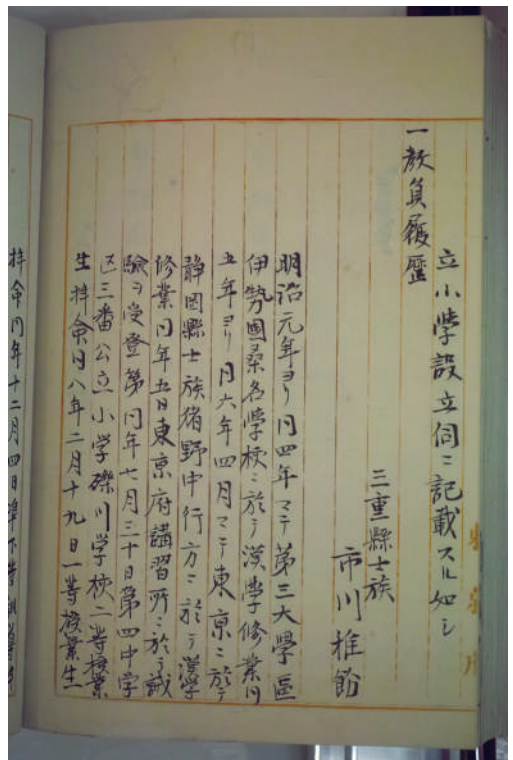 立小学設立伺ニ記載スル如シ
一教員履歴
三重縣士族
市川推飭
明治元年ヨリ同四年マテ第三大學區
伊勢國桑名学校ニ於テ漢学修業同
五年ヨリ同六年四月マテ東京ニ於テ
静岡縣士族猪野中行方ニ於テ漢学
修業同年五月東京府講習所ニ於テ試
験ヲ受登第同年七月三十日第四中学
区三番公立小学礫川学校二等授業
生拝命同八年二月十九日一等授業生
拝命同年十二月四日